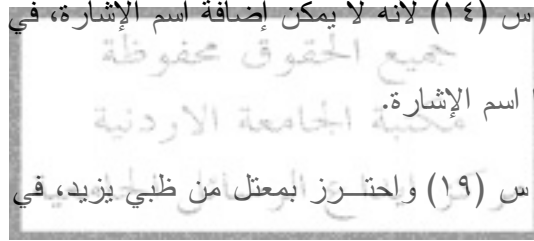 س (١٤) لأنه لا يمكن إضافة اسم الإشارة، في
جميع الحقوق محفوظة
اسم الإشارة.
مكتبة الجامعة الاردنية
س (١٩) واحتــرز بمعتل من ظبي يزيد، في